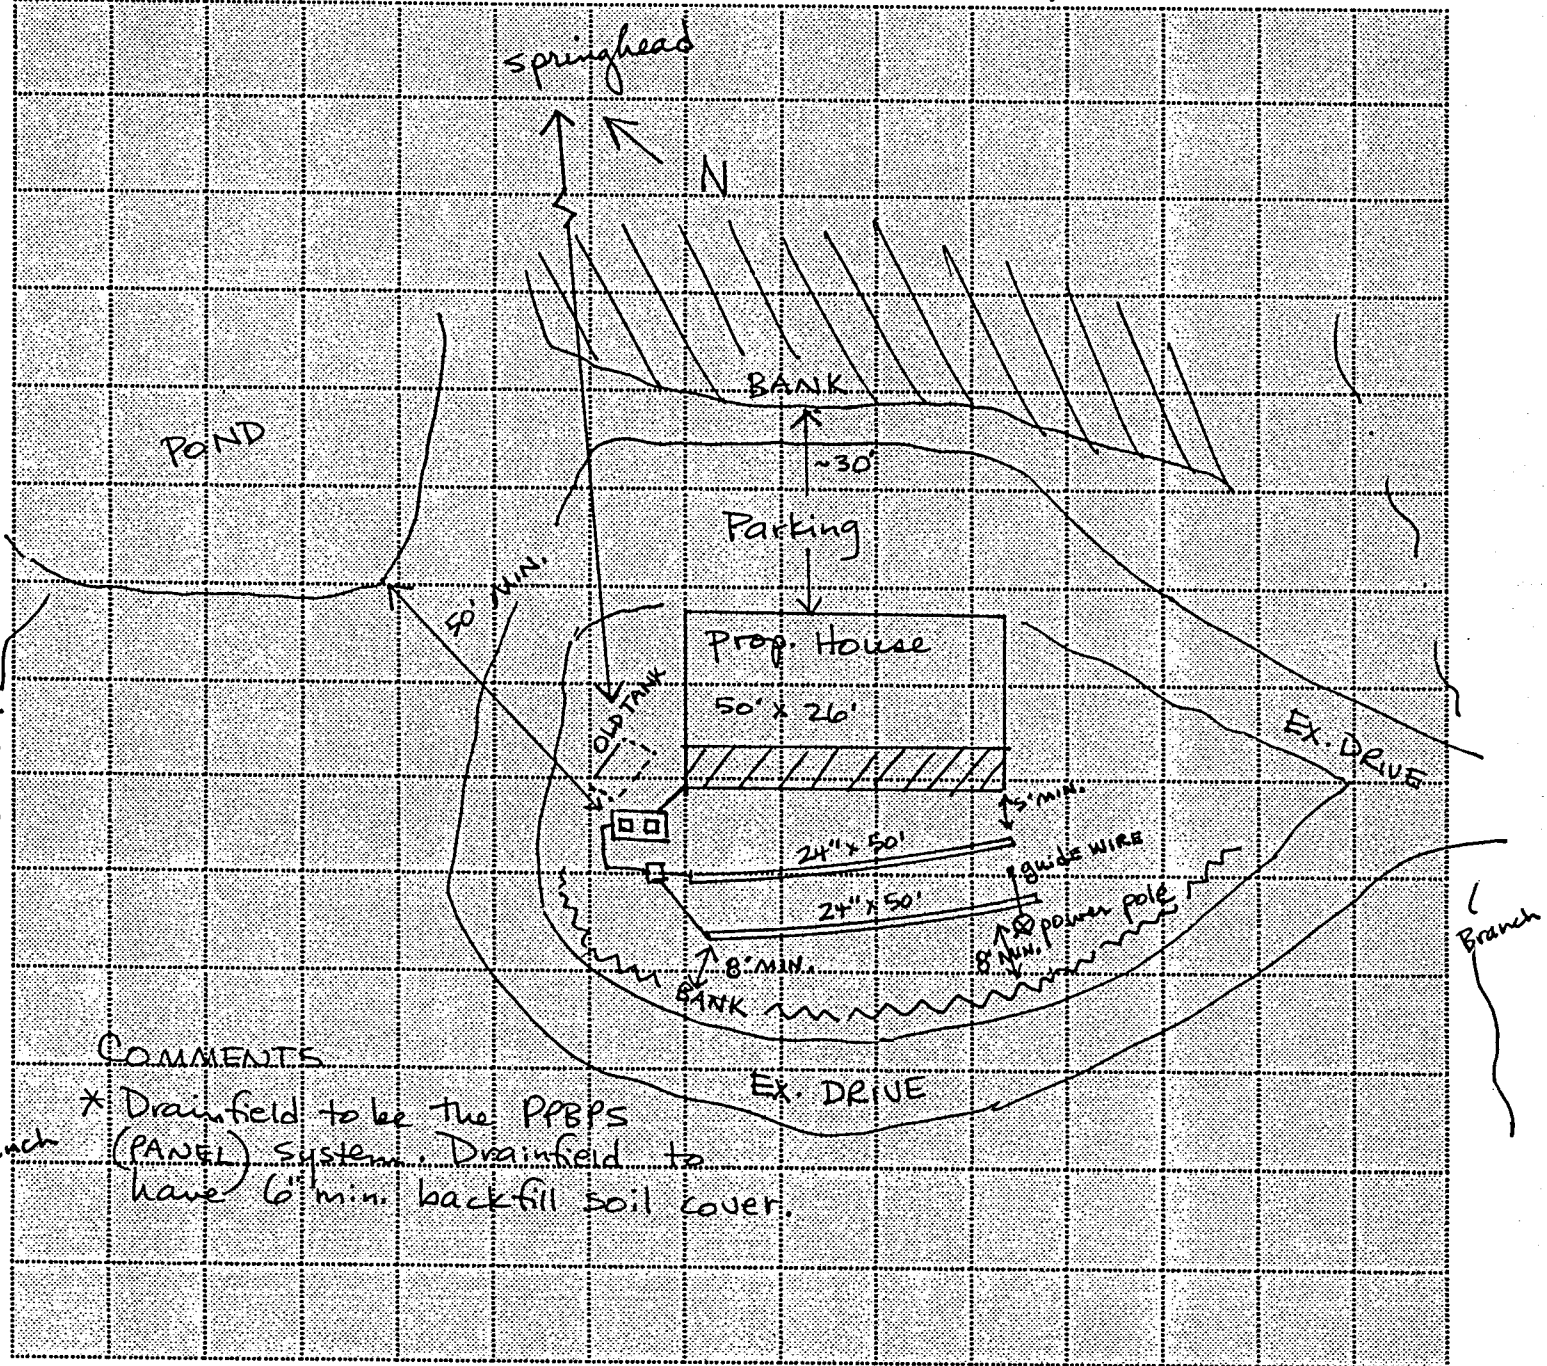 springhead
N
BANK
POND
~30'
Parking
50' MIN.
Prop. House
OLD TANK
50' x 26'
EX. DRIVE
5' MIN.
24" x 50'
guide WIRE
24" x 50'
power pole
8' MIN.
8' MIN.
BANK
Branch
EX. DRIVE
COMMENTS
* Drainfield to be the PPBPS
(PANEL) System. Drainfield to
have 6" min. backfill soil cover.
nch